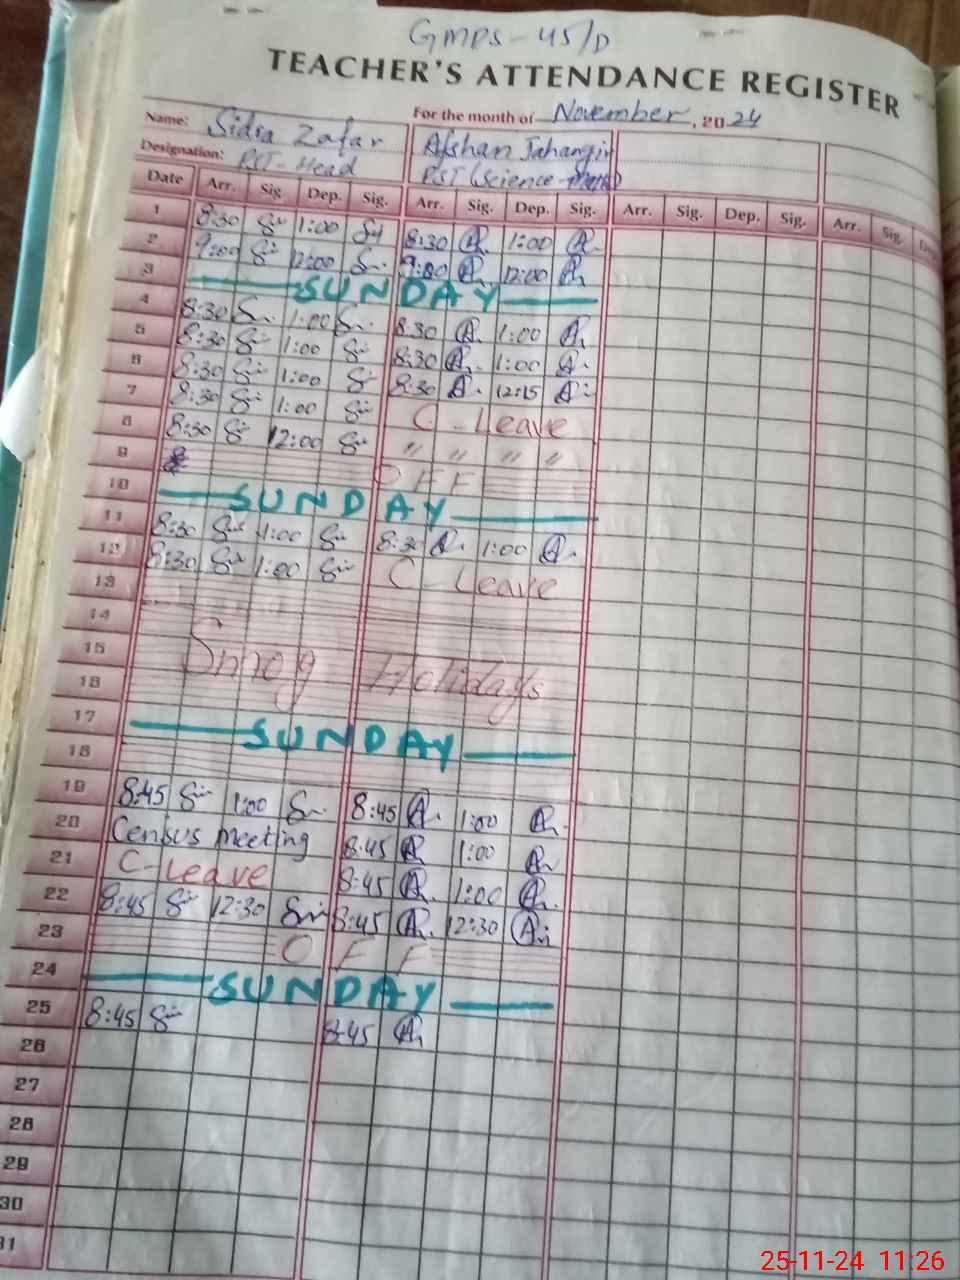 GMPS-45/D
TEACHER'S ATTENDANCE REGISTER
Name: Sidra Zafar For the month of November, 2024
Afshan Jahangir
Designation: PST-Head PST (Science-Math)
Date Arr. Sig. Dep. Sig. Arr. Sig. Dep. Sig. Arr. Sig. Dep. Sig. Arr. Sig. De
1 8:30 1:00 8:30 1:00
2 9:00 12:00 9:00 12:00
3 SUNDAY
4 8:30 1:00 8:30 1:00
5 8:30 1:00 8:30 1:00
6 8:30 1:00 8:30 12:15
7 8:30 1:00 C-Leave
8 8:30 12:00 " " " "
9 OFF
10 SUNDAY
11 8:30 1:00 8:30 1:00
12 8:30 1:00 C-Leave
13
14
15 Smog Holidays
16
17 SUNDAY
18
19 8:45 1:00 8:45 1:00
20 Census meeting 8:45 1:00
21 C-Leave 8:45 1:00
22 8:45 12:30 8:45 12:30
23 OFF
24 SUNDAY
25 8:45 8:45
26
27
28
29
30
31
25-11-24 11:26